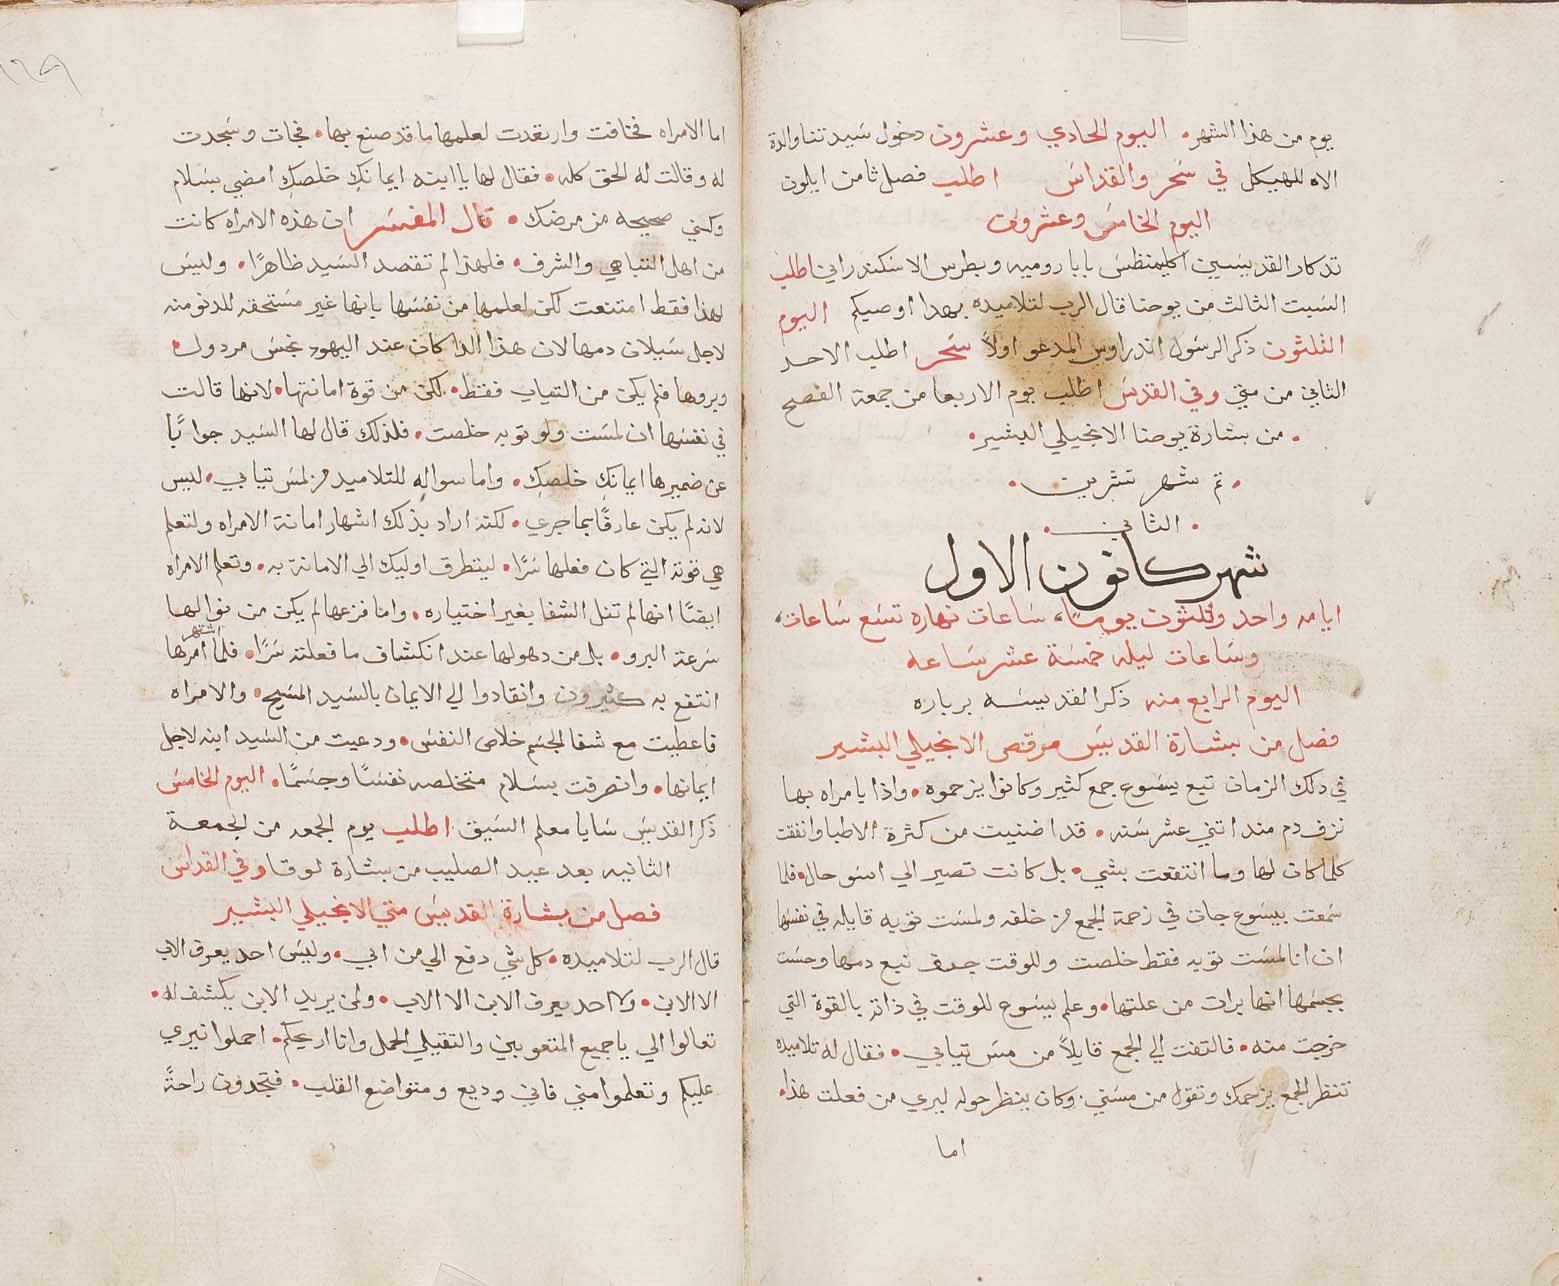 يوم من هذا الشهر • اليوم الحادي وعشرون دخول سيدتنا والدة
الاه للهيكل في سحر والقداس اطلب فصل ثامن ايلون
اليوم الخامس وعشرون
تدكار القديسين اكليمنطس بابا روميه وبطرس الاسكندراني اطلب
السبت الثالث من يوحنا قال الرب لتلاميده بهدا اوصيكم اليوم
الثلثون ذكر الرسول اندراوس المدعو اولاً سحر اطلب الاحد
الثاني من متي وفي القدس اطلب يوم الاربعا من جمعة الفصح
• من بشارة يوحنا الانجيلي البشير •
• تم شهر تشرين •
• الثاني •
شهر كانون الاول
ايامه واحد وثلثون يومًا، ساعات نهاره تسع ساعات،
وساعات ليله خمسة عشر ساعه
اليوم الرابع منه ذكر القديسه برباره
فصل من بشارة القديس مرقص الانجيلي البشير
في دلك الزمان تبع يسوع جمع كثير وكانوا يزحموه • واذا بامراه بها
نزف دم مند اتني عشر سنه • قد اضنيت من كثرة الاطبا وانفقت
كلما كان لها وما انتفعت بشي • بل كانت تصير الي اسو حال • فلما
سمعت بيسوع جات في زحمة الجمع من خلفه ولمست توبه قايله في نفسها
ان انا لمست توبه فقط خلصت وللوقت جف نبع دمها وحست
بجسمها انها برات من علتها • وعلم يسوع للوقت في ذاته بالقوة التي
خرجت منه • فالتفت الي الجمع قايلاً من مس تيابي • فقال له تلاميده
تنظر الجمع يزحمك وتقول من مسني • وكان ينظر حوله ليري من فعلت هذا •
اما
١٦٩
اما الامراه فخافت وارتعدت لعلمها ما قد صنع بها • فجات وسجدت
له وقالت له الحق كله • فقال لها يا ابنه ايمانكِ خلصكِ امضي بسلام
وكني صحيحه من مرضك • قال المفسر ان هذه الامراه كانت
من اهل التباهي والشرف • فلهذا لم تقصد السيد ظاهرًا • وليس
لهذا فقط امتنعت لكن لعلمها من نفسها بانها غير مستحقه للدنو منه
لاجل سيلان دمها لان هذا الدا كان عند اليهود نجس مردول •
وبروها فلم يكن من التياب فقط • لكن من قوة امانتها • لانها قالت
في نفسها ان لمست ولو توبه خلصت • فلذلك قال لها السيد جوابًا
عن ضميرها ايمانكِ خلصكِ • واما سواله للتلاميد من لمس تيابي • ليس
لانه لم يكن عارفًا بما جري • لكنه اراد بذلك اشهار امانة الامراه ولتعلم
هي قوته التي كان فعلها سرًا • ليتطرق اوليك الي الامانة به • وتعلم الامراه
ايضًا انها لم تنل الشفا بغير اختياره • واما فزعها لم يكن من نوالها
سرعة البرو • بل من دهولها عند انكشاف ما فعلته سرًا • فلما اشتهر امرها
انتفع به كثيرون وانقادوا الي الايمان بالسيد المسيح • والامراه
فاعطيت مع شفا الجسم خلاص النفس • ودعيت من السيد ابنه لاجل
ايمانها • وانصرفت بسلام متخلصه نفسًا وجسمًا • اليوم الخامس
ذكر القديس سابا معلم السيق اطلب يوم الجمعه من الجمعة
الثانيه بعد عيد الصليب من بشارة لوقا وفي القداس
فصل من بشارة القديس متي الانجيلي البشير
قال الرب لتلاميده • كل شي دفع الي من ابي • وليس احد يعرف الاب
الا الابن • ولا احد يعرف الابن الا الاب • ولمن يريد الابن يكشف له •
تعالوا الي يا جميع المتعوبين والتقيلي الحمل وانا اريحكم • احملوا نيري
عليكم وتعلموا مني فاني وديع ومتواضع القلب • فتجدون راحةً